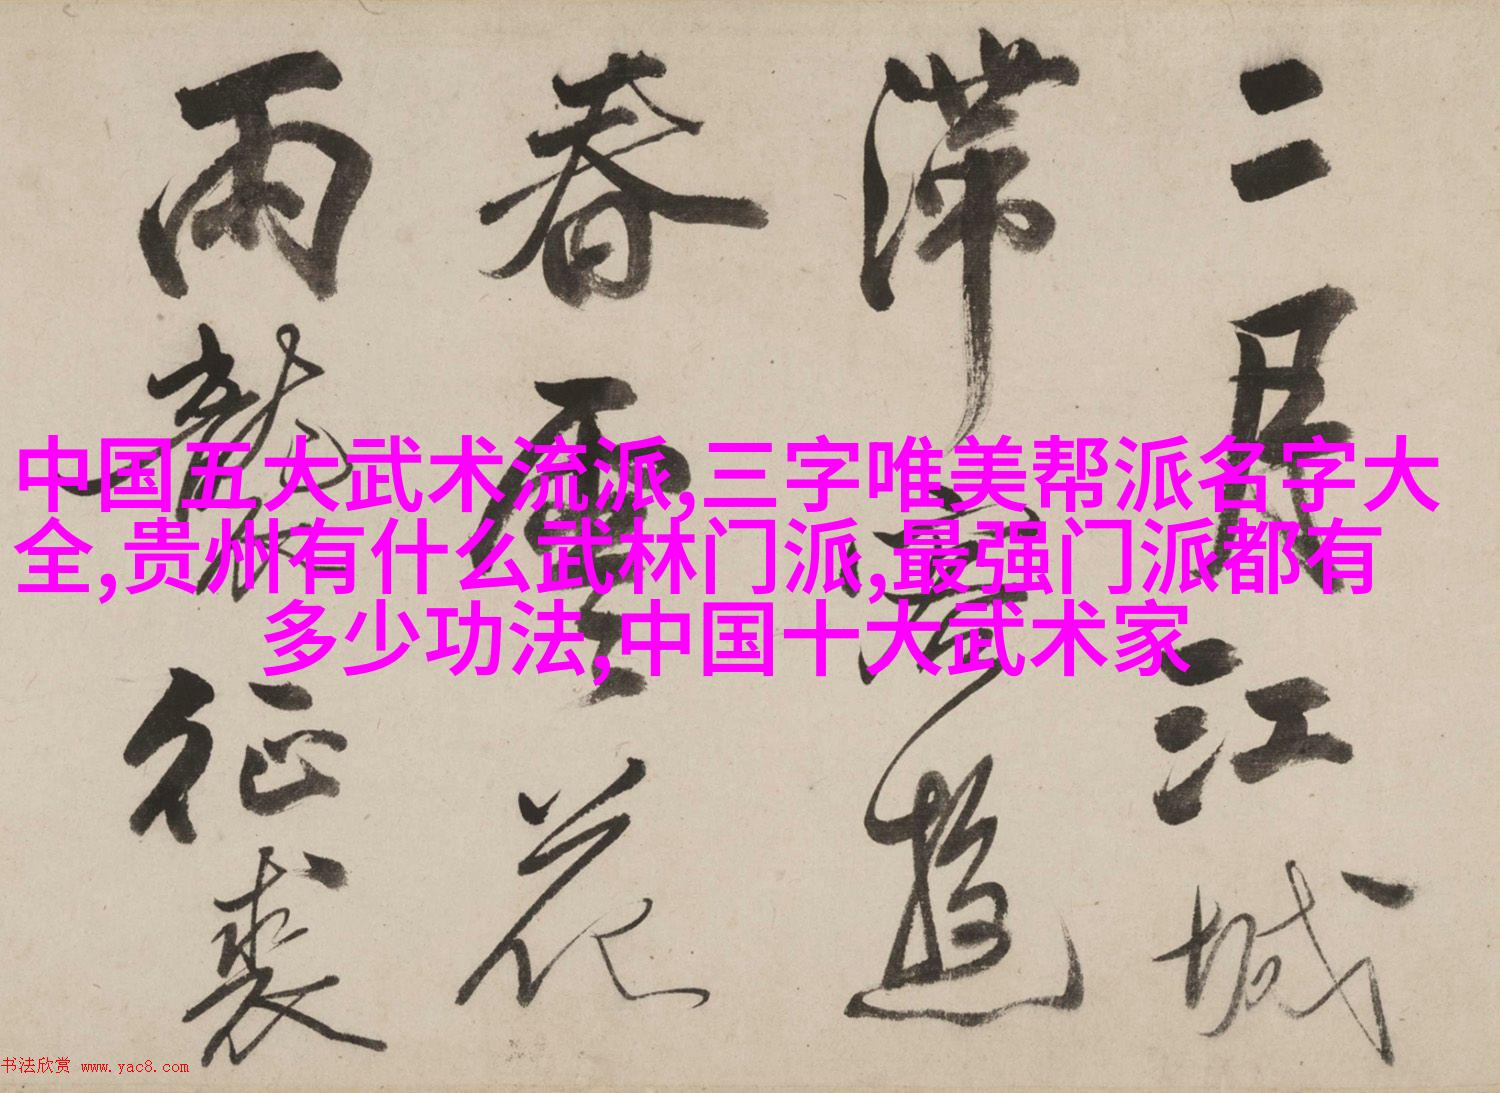 中国五大武术流派,三字唯美帮派名字大
全,贵州有什么武林门派,最强门派都有
多少功法,中国十大武术家
二月江城
滞客游
春雲花
雨龍征裘
书法欣赏 www.yac8.com